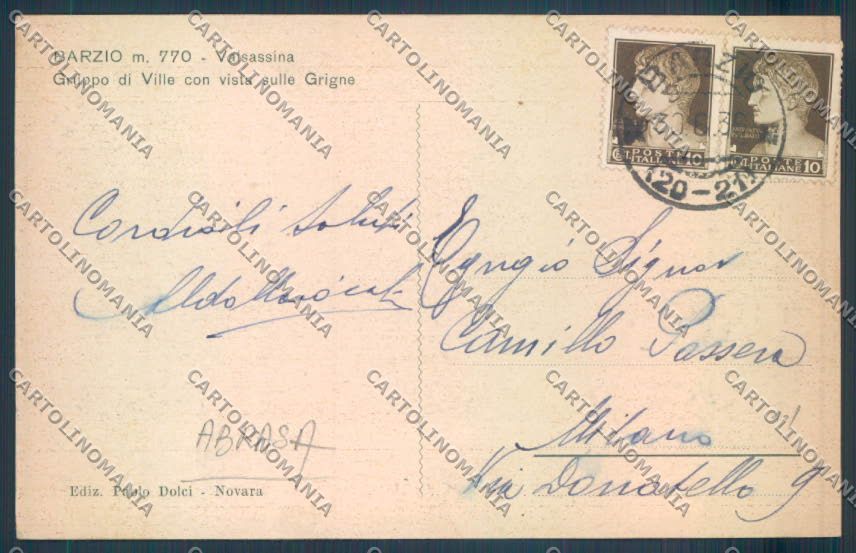 BARZIO m. 770 - Valsassina
Gruppo di Ville con vista sulle Grigne
POSTE ITALIANE
CT 10
POSTE ITALIANE 10
(20-21)
Cordiali saluti
Aldo
Egregio Signor
Camillo Passera
Milano
Via Donatello 9
ABRASA
Ediz. Paolo Dolci - Novara
CARTOLINOMANIA